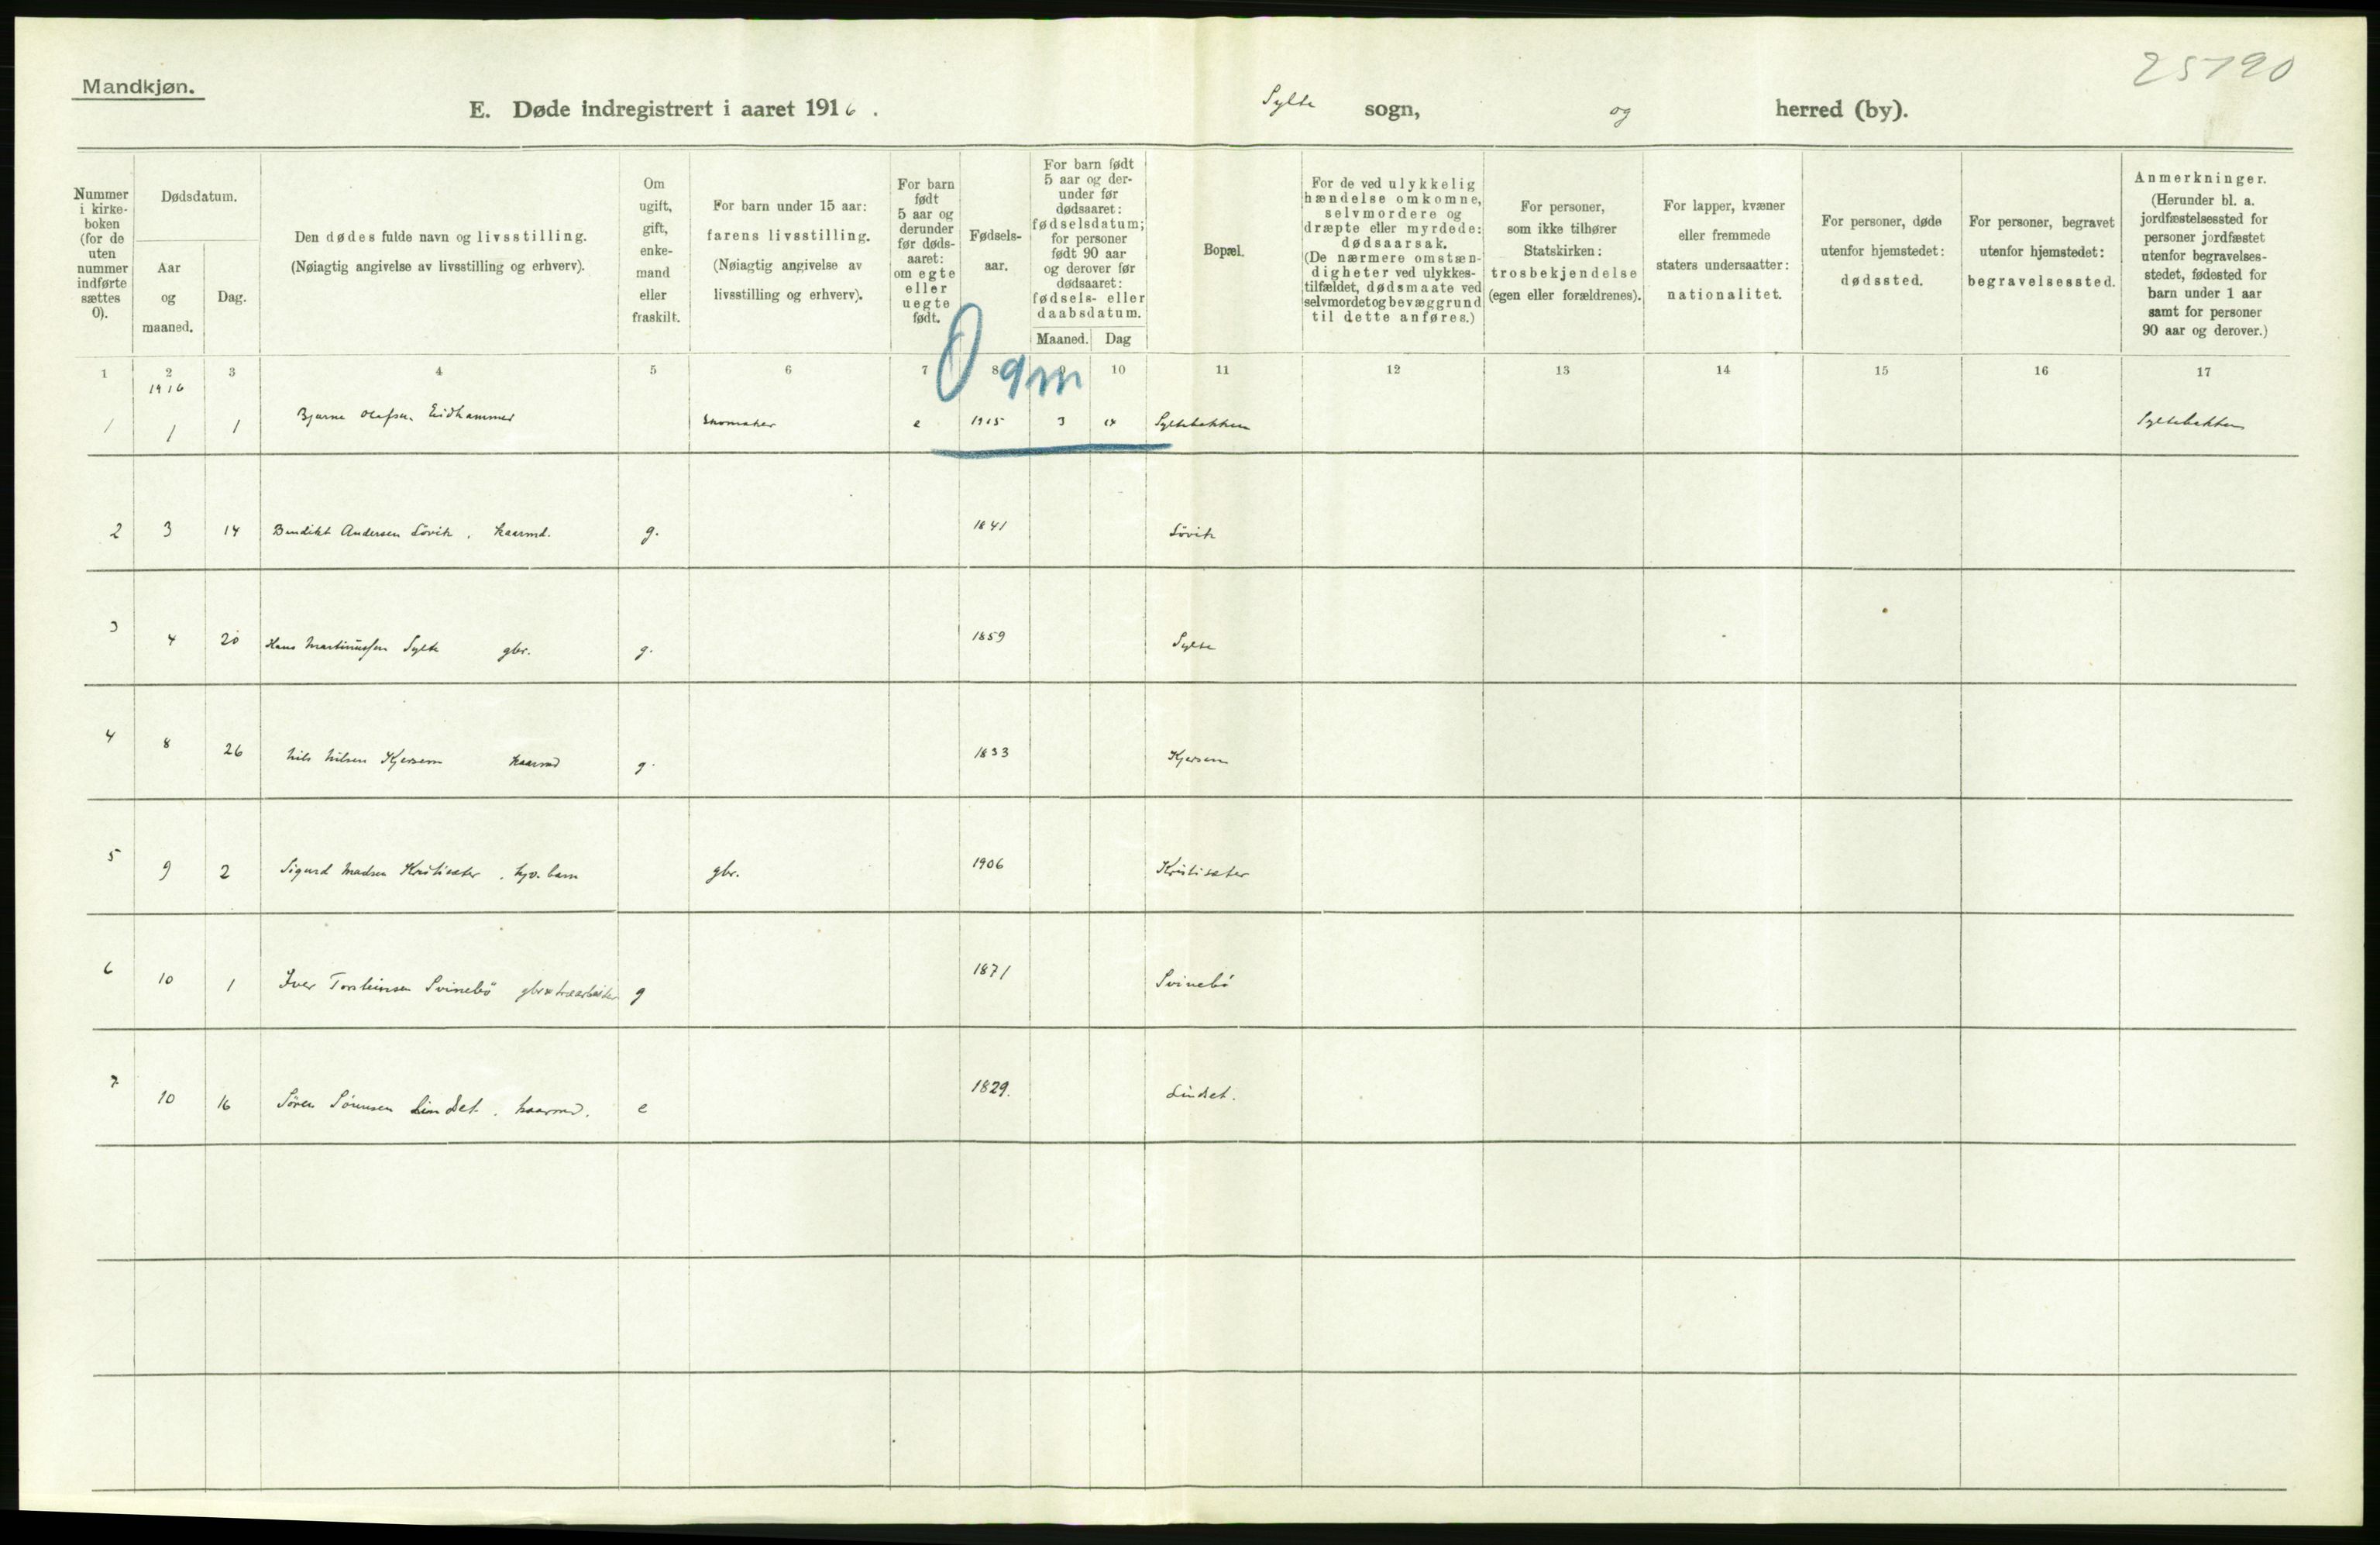 25190
Mandkjøn.
E. Døde indregistrert i aaret 1916. Sylte sogn, og herred (by).
Nummer i kirke-boken (for de uten nummer indførte sættes 0).
Dødsdatum.
Aar og maaned.
Dag.
Den dødes fulde navn og livsstilling.
(Nøiagtig angivelse av livsstilling og erhverv).
Om ugift, gift, enke-mand eller fraskilt.
For barn under 15 aar: farens livsstilling.
(Nøiagtig angivelse av livsstilling og erhverv).
For barn født 5 aar og derunder før døds-aaret: om egte eller uegte født.
Fødsels-aar.
For barn født 5 aar og der-under før dødsaaret: fødselsdatum; for personer født 90 aar og derover før dødsaaret: fødsels- eller daabsdatum.
Maaned. Dag
Bopæl.
For de ved ulykkelig hændelse omkomne, selvmordere og dræpte eller myrdede: dødsaarsak.
(De nærmere omstæn-digheter ved ulykkes-tilfældet, dødsmaate ved selvmordet og bevæggrund til dette anføres.)
For personer, som ikke tilhører Statskirken: trosbekjendelse (egen eller forældrenes).
For lapper, kvæner eller fremmede staters undersaatter: nationalitet.
For personer, døde utenfor hjemstedet: dødssted.
For personer, begravet utenfor hjemstedet: begravelsessted.
Anmerkninger.
(Herunder bl. a. jordfæstelsessted for personer jordfæstet utenfor begravelses-stedet, fødested for barn under 1 aar samt for personer 90 aar og derover.)
1 2 3 4 5 6 7 8 9 10 11 12 13 14 15 16 17
1916
0 9m
1 1 1 Bjarne Olafsen Eidhammer skomaker e 1915 3 14 Syltebakken Syltebakken
2 3 14 Bendikt Andersen Lövik, kaarmd. g. 1841 Lövik
3 4 20 Hans Martinussen Sylte gbr. g. 1859 Sylte
4 8 26 Nils Nilsen Kjersem kaarmd g. 1833 Kjersem
5 9 2 Sigurd Madsen Kristisæter, hjv. barn gbr. 1906 Kristisæter
6 10 1 Iver Torsteinsen Svinebö gbr & træarbeider g 1871 Svinebö
7 10 16 Sören Sörensen Lindset, kaarmd. e 1829. Lindset.